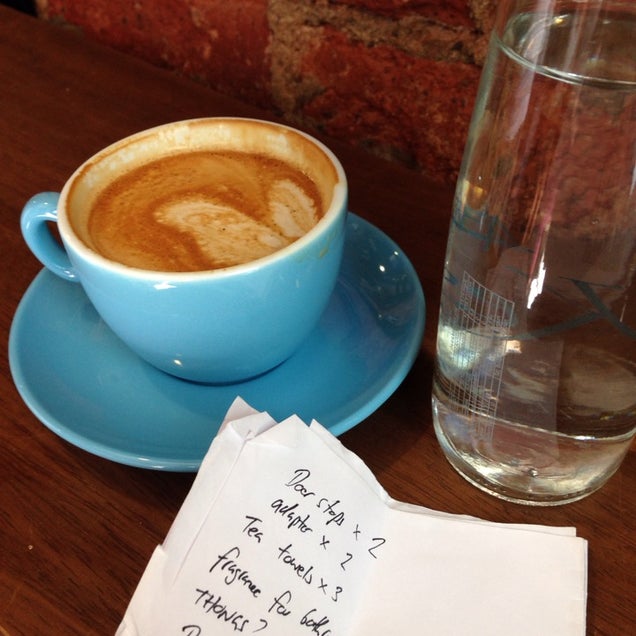 Door stops x 2
adapter x 2
Tea towels x 3
fragrance for bath
THONGS?